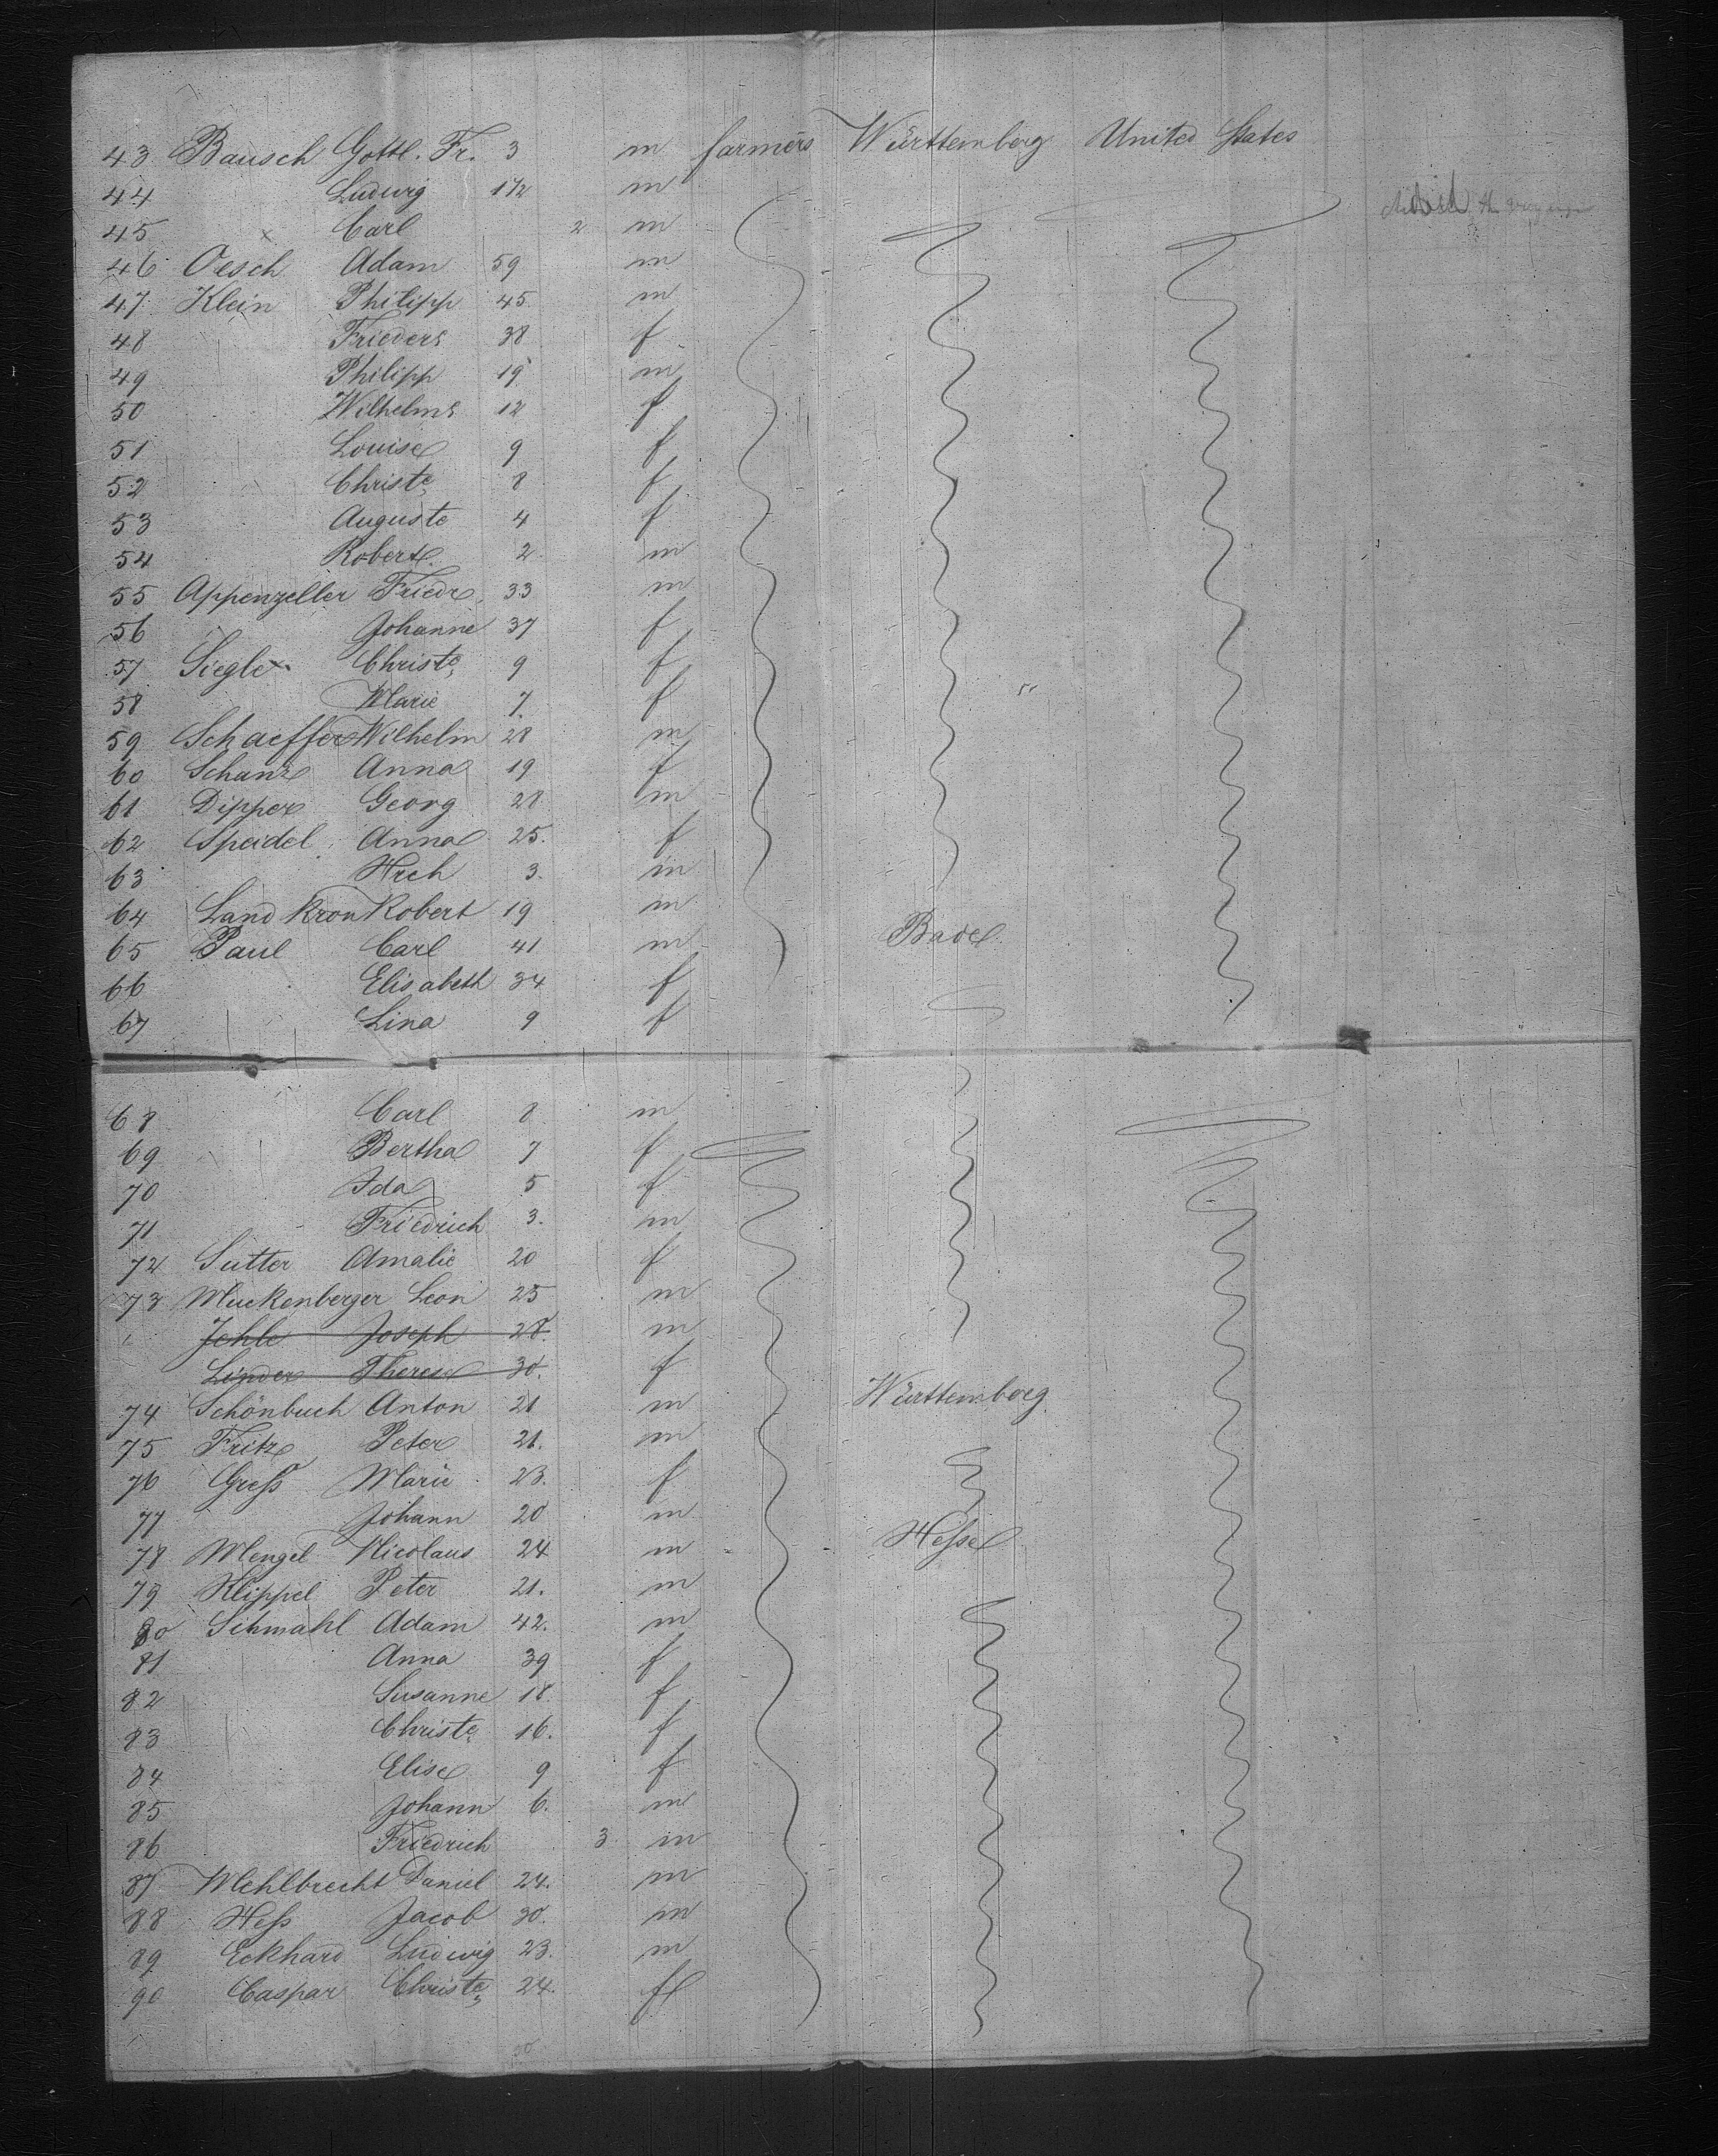 43 Bausch Gottl. Fr. 3 m farmers Württemberg United States
44 Ludwig 1 1/2 m
45 x Carl 2 m died
46 Oesch Adam 59 m
47 Klein Philipp 45 m
48 Frieders 38 f
49 Philipp 19 m
50 Wilhelms 12 f
51 Louise 9 f
52 Christe 8 f
53 Auguste 4 f
54 Robert 2 m
55 Appenzeller Friedr. 33 m
56 Johanne 37 f
57 Siegle x Christe 9 f
58 Marie 7 f
59 Schaeffer Wilhelm 28 m
60 Schanz Anna 19 f
61 Dipper Georg 28 m
62 Speidel Anna 25. f
63 Hrch 3. m
64 Landkron Robert 19 m
65 Paul Carl 41 m Baden
66 Elisabeth 34 f
67 Lina 9 f
68 Carl 8 m
69 Bertha 7 f
70 Ida 5 f
71 Friedrich 3. m
72 Sutter Amalie 20 f
73 Muckenberger Leon 25 m
Jehle Joseph 28. m
Linder Therese 30. f
74 Schönbuch Anton 21 m Württemberg
75 Fritz Peter 21. m
76 Greß Marie 23. f
77 Johann 20 m
78 Mengel Nicolaus 24 m Hesse
79 Klippel Peter 21. m
80 Schmahl Adam 42. m
81 Anna 39 f
82 Susanne 18. f
83 Christe 16. f
84 Elise 9 f
85 Johann 6. m
86 Friedrich 3 m
87 Mehlbrecht Daniel 24. m
88 Heß Jacob 30. m
89 Eckhard Ludwig 23. m
90 Caspar Christe 24. f